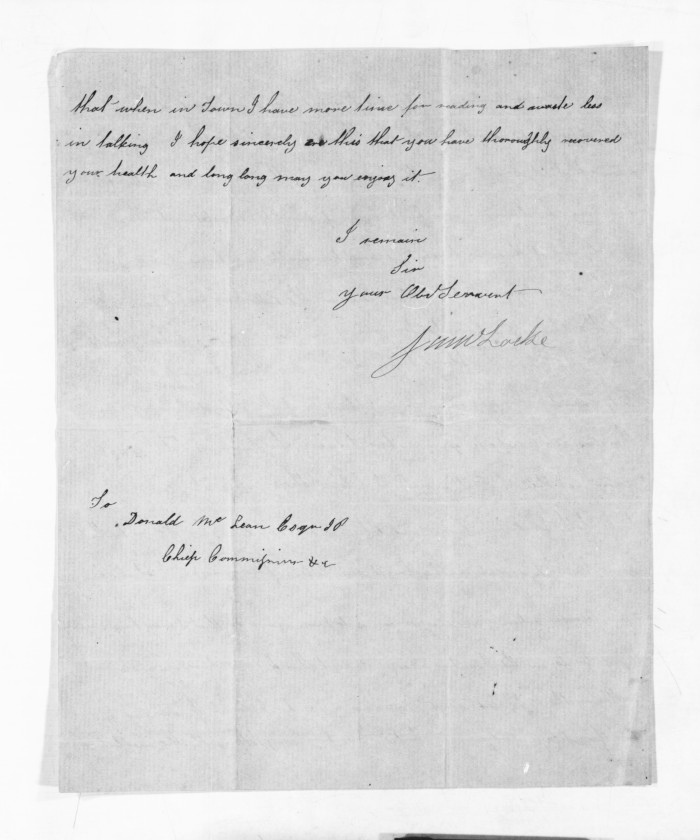 that when in Town I have more time for reading and waste less
in talking I hope sincerely this that you have thoroughly recovered
your health and long long may you enjoy it.
I remain
Sir
Your Obd Servant
Locke
To
Donald Mc Lean Esqr JP
Chief Commissioner &c